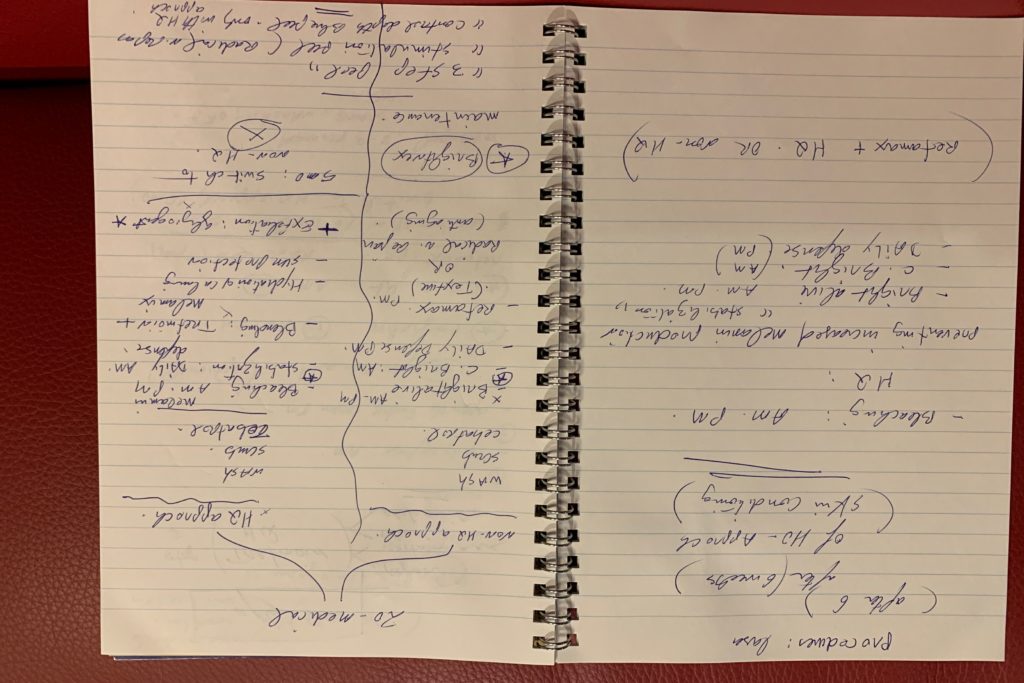 Procedures: laser
(after 6)
after (6 weeks)
of HQ-Approch
(Skin Conditioning)
- Bleaching : AM. PM
HQ :
Preventing increased melanin production
"stabilization"
- Brightalive AM. PM.
- C. Bright. (AM)
- DAily defense (PM)
(Retamax + HQ. OR non-HQ)
Zo-medical
non-HQ approch.
WASH
scrub
cebatrol.
x - Brightalive AM-PM
- C. Bright. AM
- DAily Defense PM.
- Retamax. PM.
OR
Radical n. Repair
(anti aging).
* Brightnex
maintenance.
x HQ approch.
WASH
scrub.
Cebatrol.
melamin
- Bleaching AM. PM
* stabilization : DAily AM.
defense
- Blending : Tretinoin +
melamix
- Hydration & calming
- sun protection
+ Exfoliation : glycogent *
5 mo : switch to
non-HQ.
X
"3 step peel"
"stimulation peel (Radical n. Repair
"control depth Blue peel. only with HQ
approch